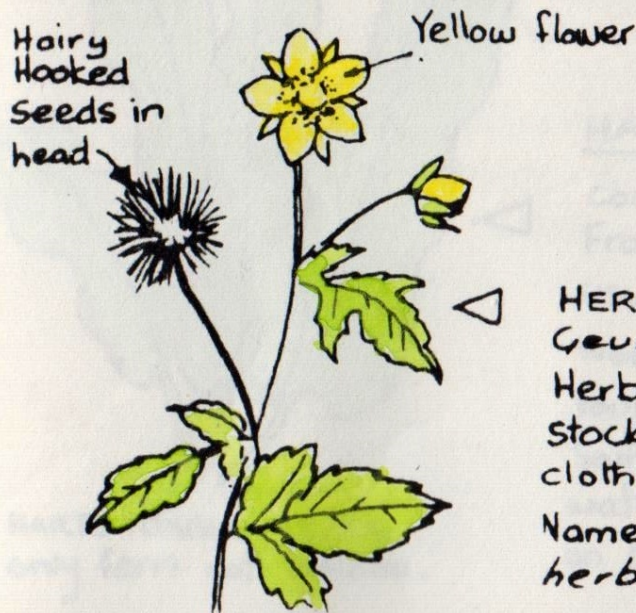 Hairy
Hooked
Seeds in
head
Yellow flower
HER
Geu
Herb
Stock
cloth
Name
herb